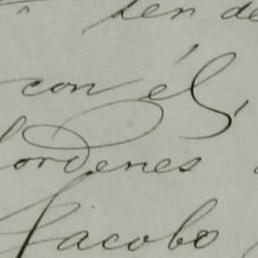 ten de
con él,
ordenes
Jacobo